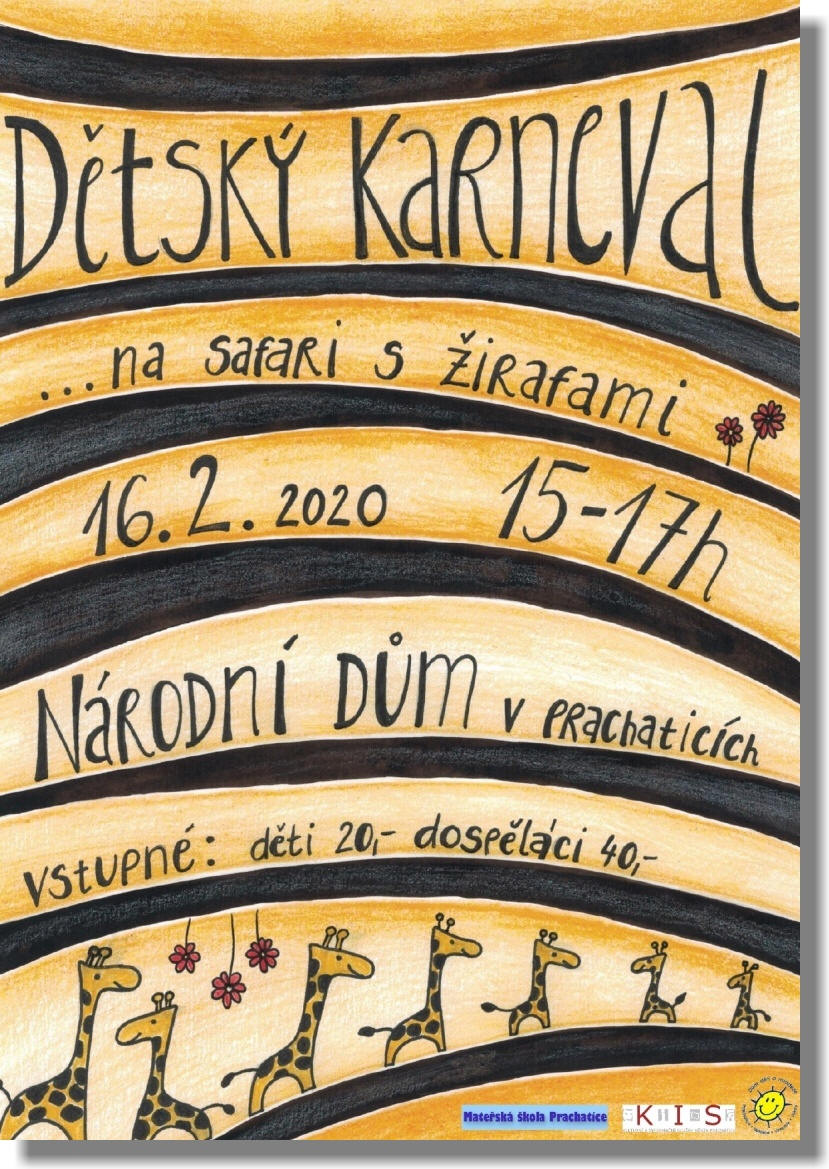 Dětský Karneval
...na safari s žirafami
16.2.2020 15-17h
Národní dům v Prachaticích
vstupné: děti 20,- dospěláci 40,-
Mateřská škola Prachatice
KIS